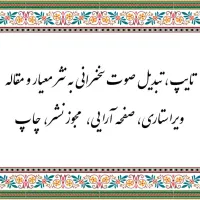 تایپ، تبدیل صوت سخنرانی به نثر معیار و مقاله
ویراستاری، صفحه آرایی، مجوز نشر، چاپ